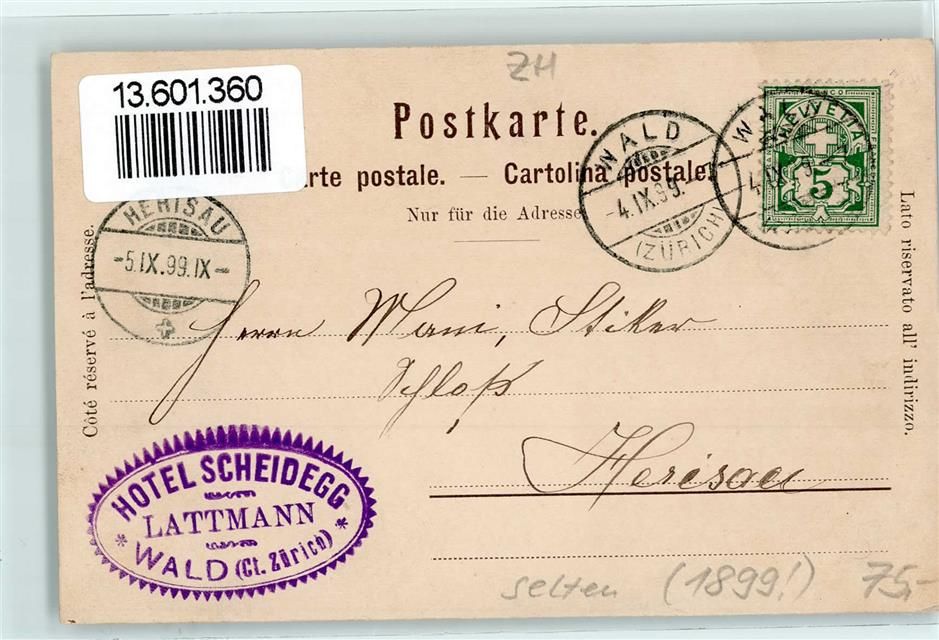 13.601.360
ZH
Postkarte.
rte postale. — Cartolina postale.
Nur für die Adresse
Côté réservé à l'adresse.
Lato riservato all' indirizzo.
HERISAU
-5.IX.99.IX-
WALD
-4.IX.99.-
(ZÜRICH)
W
4.IX.9
HELVETIA
FRANCO
5
Herrn Mani, Stiker
Schloß
Herisau
HOTEL SCHEIDEGG
LATTMANN
* WALD (Ct. Zürich) *
selten (1899!) 75,-